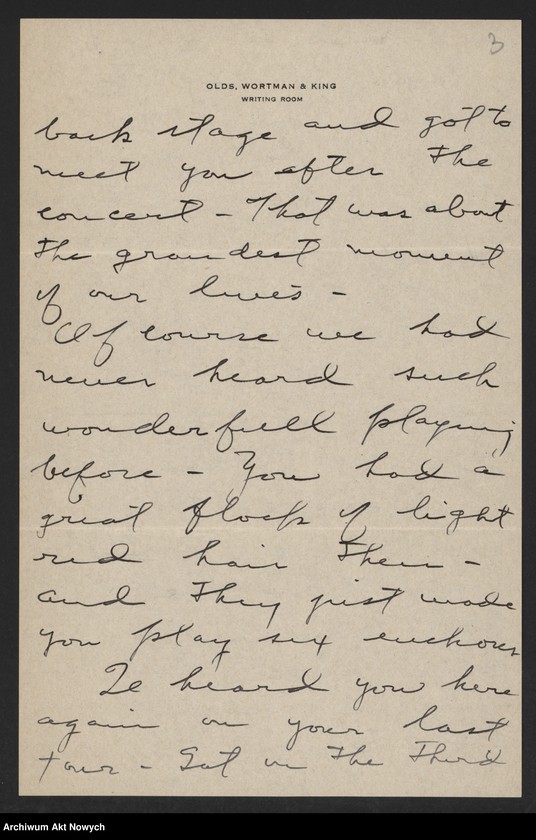 3
OLDS, WORTMAN & KING
WRITING ROOM
back stage and got to
meet you after the
concert - That was about
the grandest moment
of our lives -
Of course we had
never heard such
wonderfull playing
before - You had a
great flock of light
red hair then -
and they just made
you play six enchors
I heard you here
again on your last
tour - Sat in the Third
Archiwum Akt Nowych